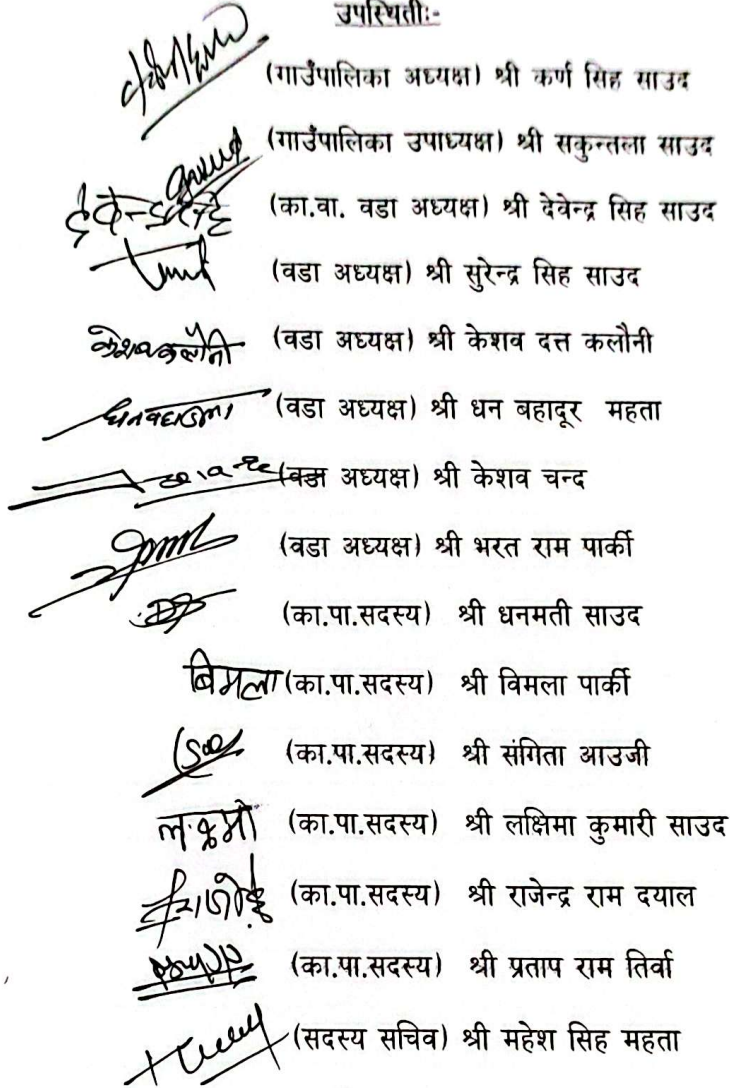 उपस्थितीः-
(गाउँपालिका अध्यक्ष) श्री कर्ण सिह साउद
(गाउँपालिका उपाध्यक्ष) श्री सकुन्तला साउद
(का.वा. वडा अध्यक्ष) श्री देवेन्द्र सिह साउद
(वडा अध्यक्ष) श्री सुरेन्द्र सिह साउद
केशव कलौनी (वडा अध्यक्ष) श्री केशव दत्त कलौनी
(वडा अध्यक्ष) श्री धन बहादूर महता
(वडा अध्यक्ष) श्री केशव चन्द
(वडा अध्यक्ष) श्री भरत राम पार्की
(का.पा.सदस्य) श्री धनमती साउद
बिमला (का.पा.सदस्य) श्री विमला पार्की
(का.पा.सदस्य) श्री संगिता आउजी
(का.पा.सदस्य) श्री लक्षिमा कुमारी साउद
(का.पा.सदस्य) श्री राजेन्द्र राम दयाल
(का.पा.सदस्य) श्री प्रताप राम तिर्वा
(सदस्य सचिव) श्री महेश सिह महता